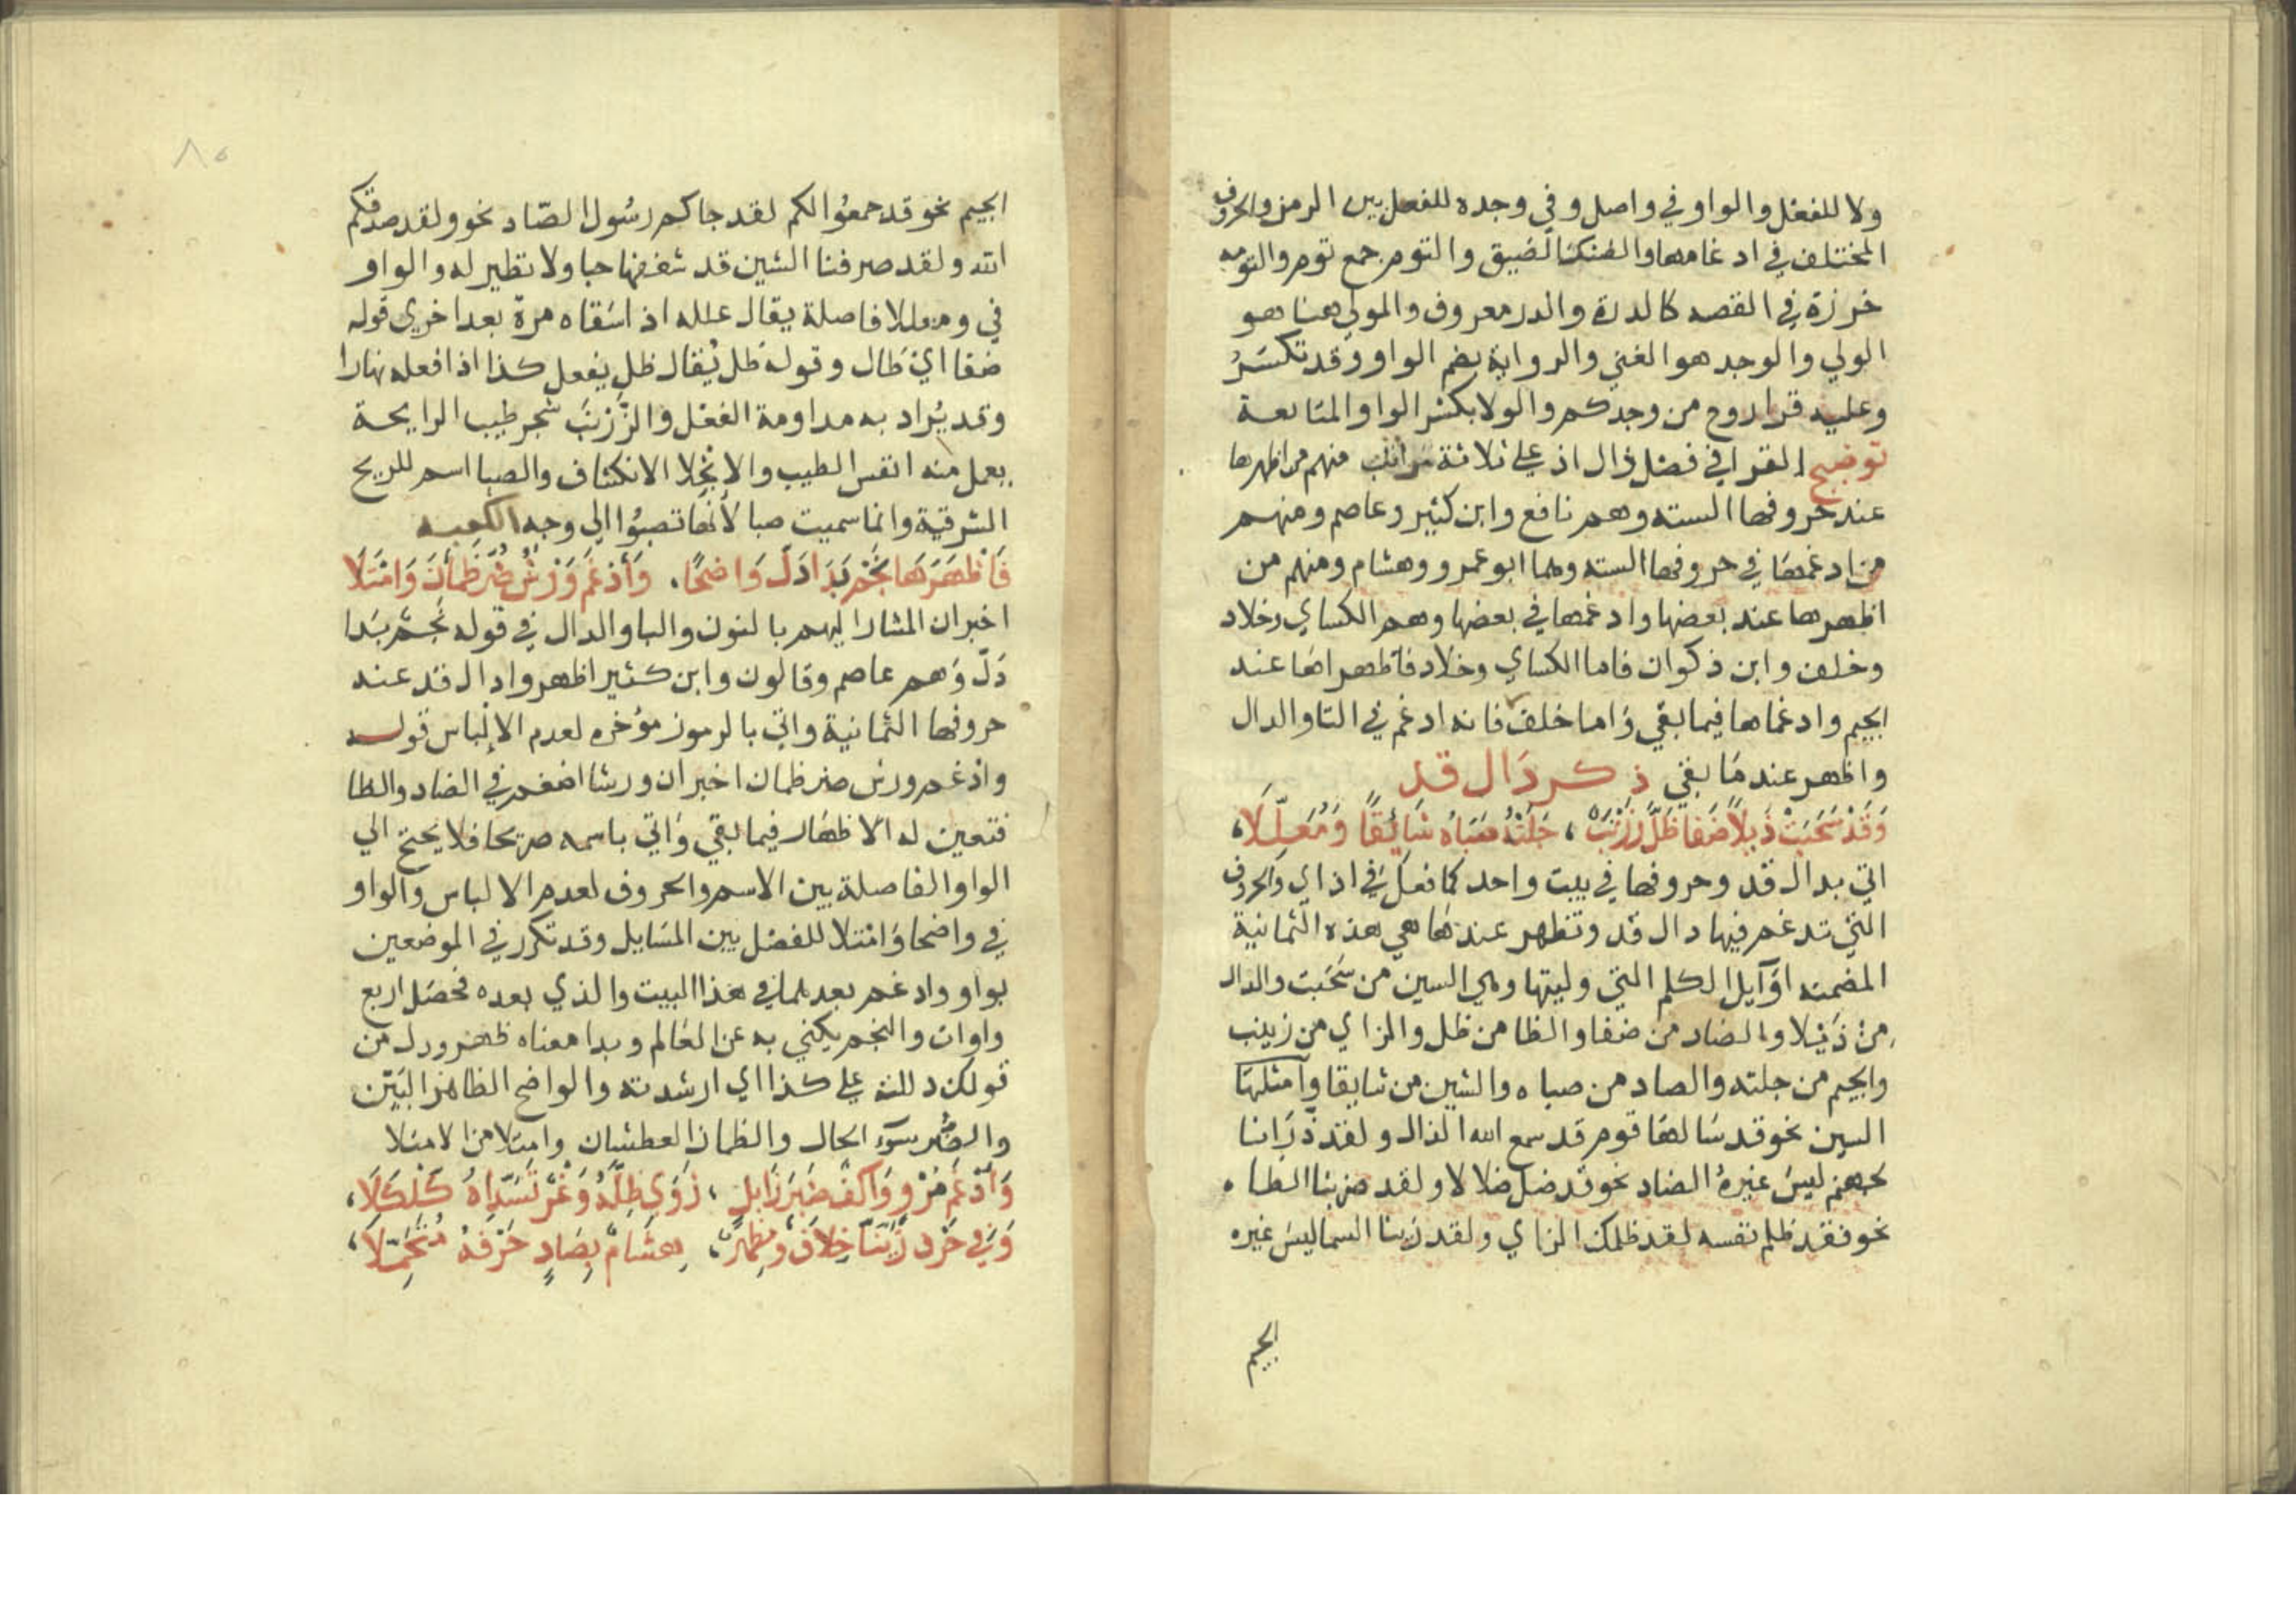 ولا للفصل والواو في واصل وفي وجده للفصل بين الرمز والحروف
المختلف في ادغامها والضنك الضيق والتوم جمع تومه والتومه
خرزة في الفضه كالدرة والدر معروف والمولي هنا هو
الولي والوجد هو الغني والرواية بضم الواو وقد تكسر
وعليه قرا روح من وجدكم والولا بكسر الواو المتابعة
توضيح القرا في فصل ذال اذ علي ثلاثة مراتب منهم من اظهرها
عند حروفها السته وهم نافع وابن كثير وعاصم ومنهم
من ادغمها في حروفها السته وهما ابو عمرو وهشام ومنهم من
اظهرها عند بعضها وادغمها في بعضها وهم الكساي وخلاد
وخلف وابن ذكوان فاما الكساي وخلاد فاظهراها عند
الجيم وادغماها فيما بقي واما خلف فانه ادغم في التا والدال
واظهر عند ما بقي ذكر دال قد
وَقَدْ سَحَبَتْ ذَيْلاً ضَفَا ظَلَّ زَرْنَبٌ ، جَلَتْهُ صَبَاهُ شَائِقًا وَمُعَلَّلَا،
اتي بدال قد وحروفها في بيت واحد كما فعل في اذ اي والحروف
التي تدغم فيها دال قد وتظهر عندها هي هذه الثمانية
المضمنه اوآيل الكلم التي وليتها وهي السين من سحبت والذال
من ذيلا والضاد من ضفا والظا من ظل والزاي من زرنب
والجيم من جلته والصاد من صباه والشين من شايقا وامثلتها
السين نحو قد سالها قوم قد سمع الله الذال ولقد ذرانا
لجهنم ليس غيره الضاد نحو قد ضل ضلالا ولقد ضربنا الظا
نحو فقد ظلم نفسه لقد ظلمك الزاي ولقد زينا السما ليس غيره
الجيم
الجيم نحو قد جمعوا لكم لقد جاكم رسول الصاد نحو ولقد صدقكم
الله ولقد صرفنا الشين قد شغفها حبا ولا نظير له والواو
في ومعللا فاصلة يقال علله اذا سقاه مرة بعد اخري قوله
ضفا اي طال وقوله ظل يقال ظل يفعل كذا اذا فعله نهارا
وقد يراد به مداومة الفعل والزرنب شجر طيب الرايحة
يعمل منه انفس الطيب والانجلا الانكشاف والصبا اسم للريح
الشرقية وانما سميت صبا لأنها تصبوا الي وجه الكعبه
فَأَظْهَرَهَا نَجْمٌ بَدَا دَلَّ وَاضِحًا، وَأَدْغَمَ وَرْشٌ ضُرَّ ظَمْآنَ وَامْتَلَا
اخبر ان المشار اليهم بالنون والبا والدال في قوله نجم بدا
دل وهم عاصم وقالون وابن كثير اظهروا دال قد عند
حروفها الثمانية واتي بالرموز مؤخره لعدم الالباس قوله
وادغم ورش ضر ظمان اخبر ان ورشا ادغم في الضاد والظا
فتعين له الاظهار فيما بقي واتي باسمه صريحا فلا يحتج الي
الواو الفاصلة بين الاسم والحروف لعدم الالباس والواو
في واضحا وامتلا للفصل بين المسايل وقد تكرر في الموضعين
بواو وادغم بعدهما في هذا البيت والذي بعده فحصل اربع
واوات والنجم يكني به عن العالم وبدا معناه ظهر ودل من
قولك دللته علي كذا اي ارشدته والواضح الظاهر البين
والضر سوء الحال والظمان العطشان وامتلا من الامتلا
وَأَدْغَمَ مُرْوٍ وَاكِفٌ ضَيْرَ ذَابِلٍ ، زَوَى ظِلَّهُ وَغْرٌ تَسَدَّاهُ كَلْكَلَا،
وَفِي حَرْفِ زَيَّنَّا خِلَافٌ وَمُظْهِرٌ، هِشَامٌ بِصَادٍ حَرْفَهُ مُتَحَمِّلَا،